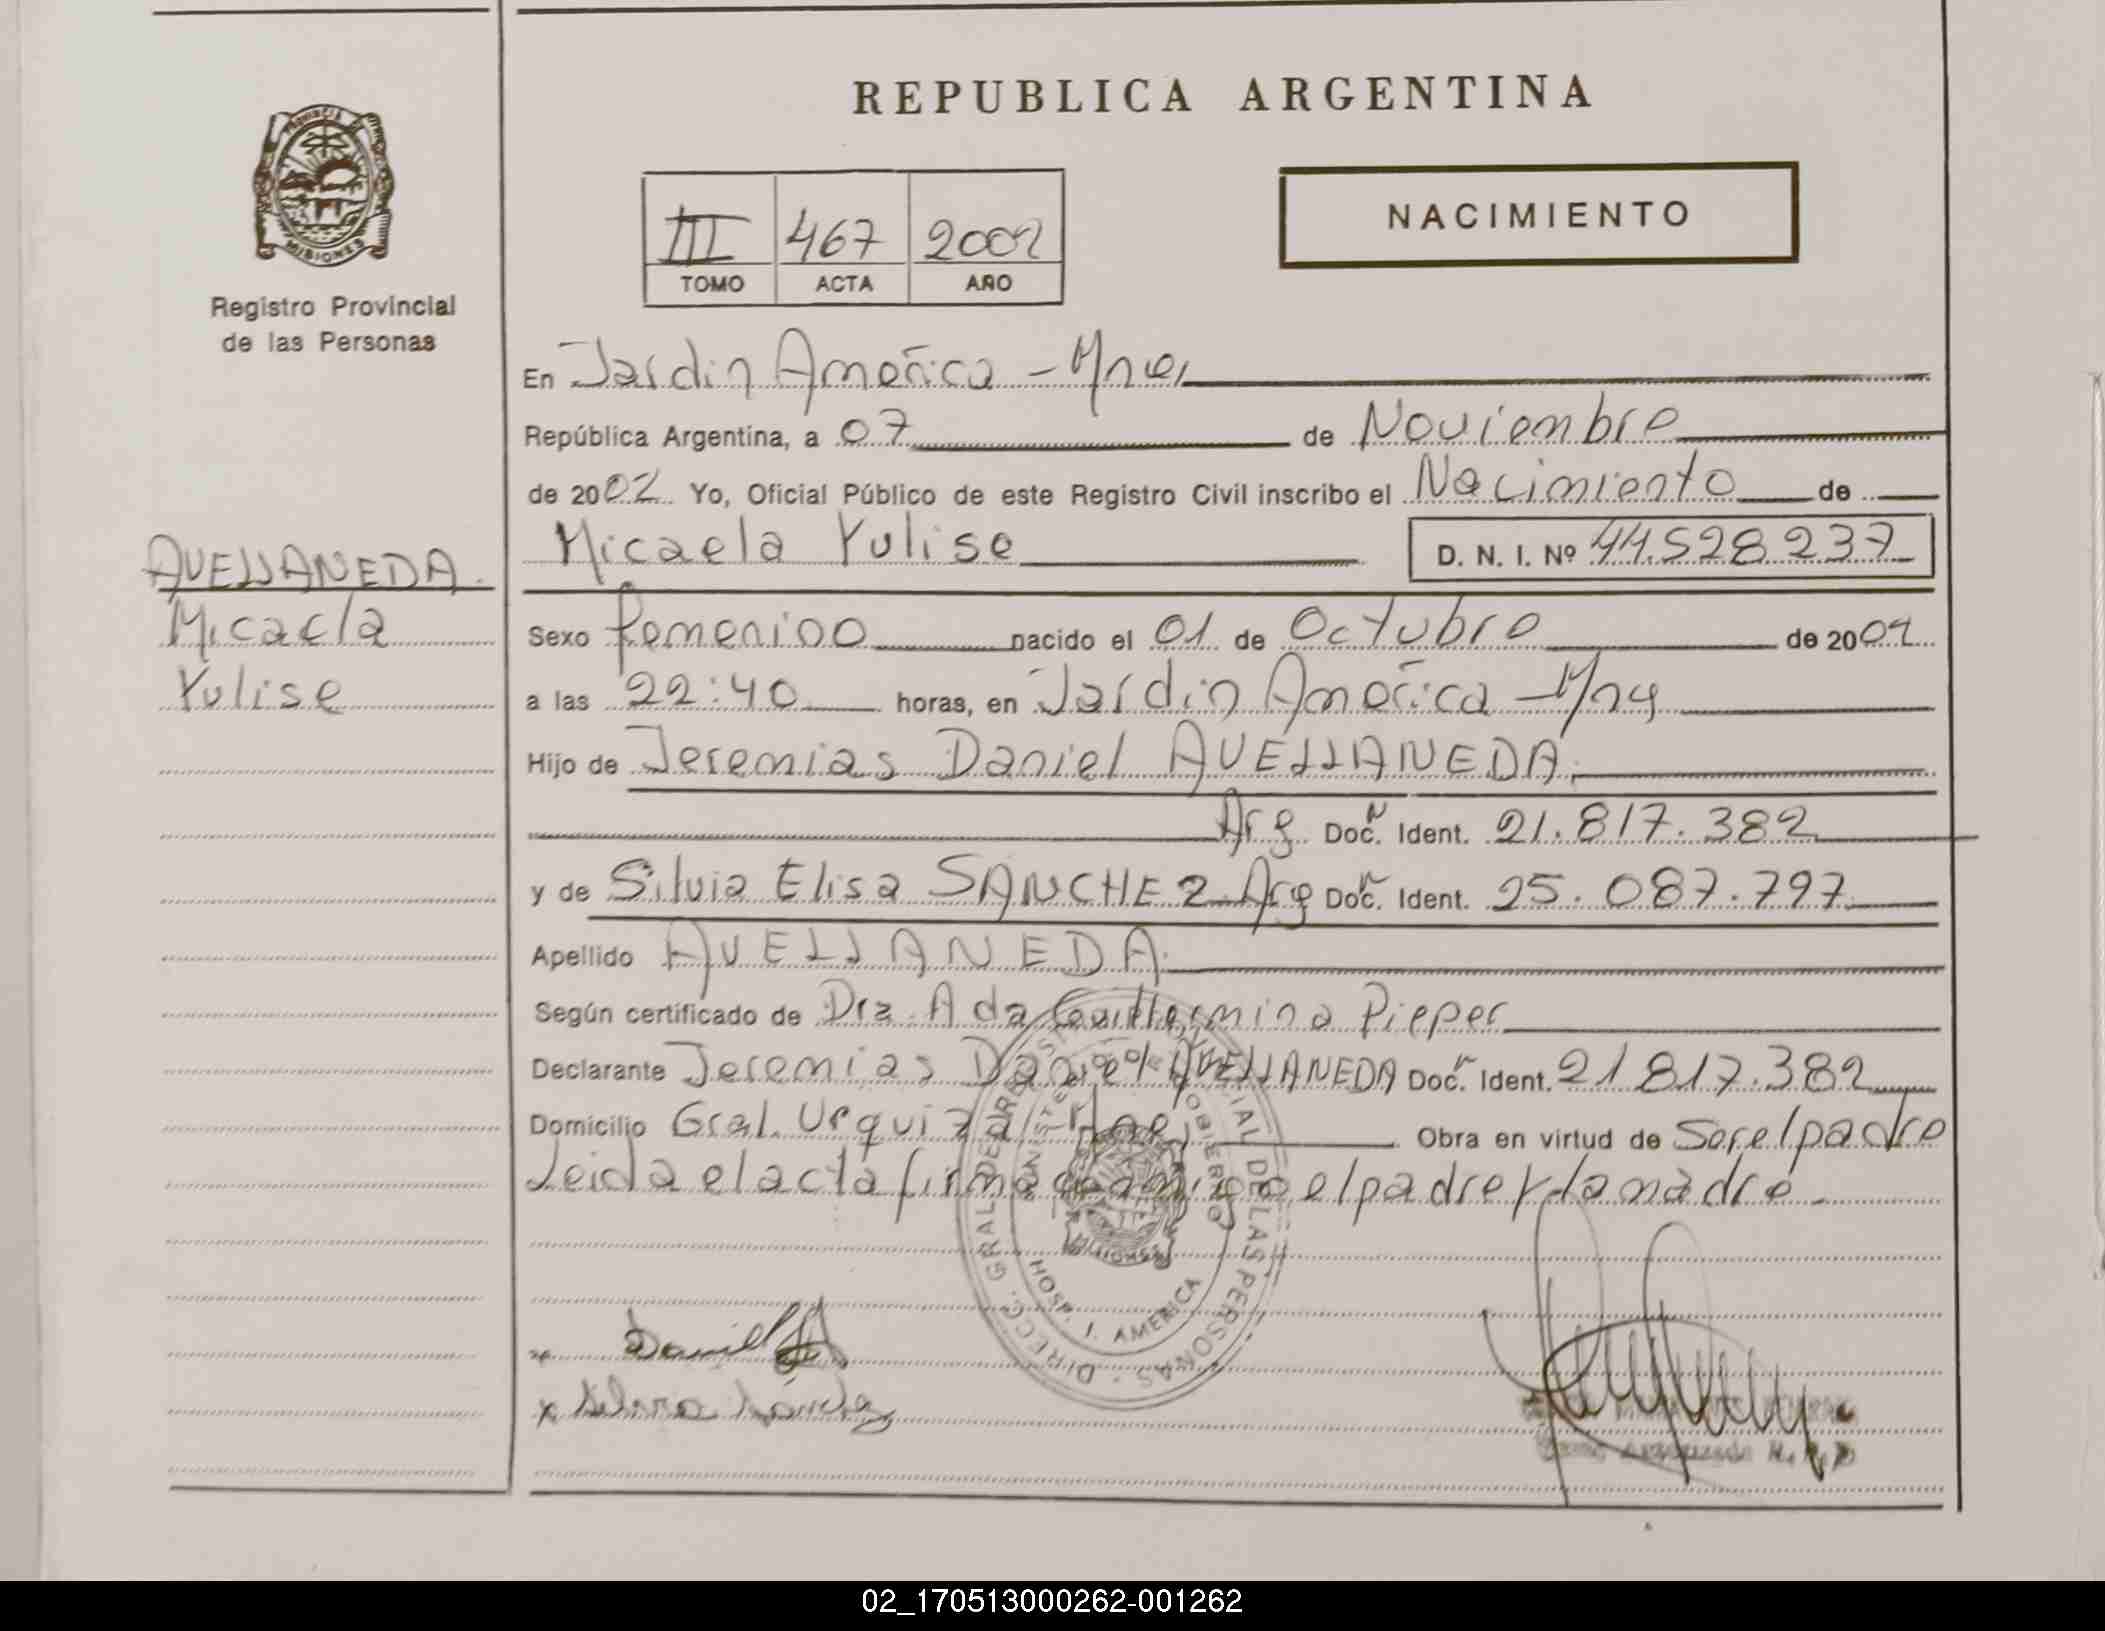 REPUBLICA ARGENTINA
PROVINCIA DE
MISIONES
Registro Provincial
de las Personas
NACIMIENTO
III 467 2002
TOMO ACTA AÑO
En Jardin America - Mnes
República Argentina, a 07 de Noviembre
de 2002 Yo, Oficial Público de este Registro Civil inscribo el Nacimiento de
Micaela Yulise D. N. I. Nº 44.528.237
AVELLANEDA
Micaela
Yulise
Sexo femenino nacido el 01 de Octubre de 2002
a las 22:40 horas, en Jardin America - Mnes
Hijo de Jeremias Daniel AVELLANEDA
Arg Doc. Ident. 21.817.382
y de Silvia Elisa SANCHEZ Arg Doc. Ident. 25.087.797
Apellido AVELLANEDA
Según certificado de Dra. Ada Guillermina Pieper
Declarante Jeremias Daniel AVELLANEDA Doc. Ident. 21 817.382
Domicilio Gral. Urquiza - Mnes Obra en virtud de Ser el padre
Leida el acta firman conmigo el padre y la madre.
DIRECC. GRAL. DE REGISTRO PROVINCIAL DE LAS PERSONAS
MINISTERIO GOBIERNO
MISIONES
HOSP. J. AMERICA
x Daniel
x Silvia Sánchez
02_170513000262-001262